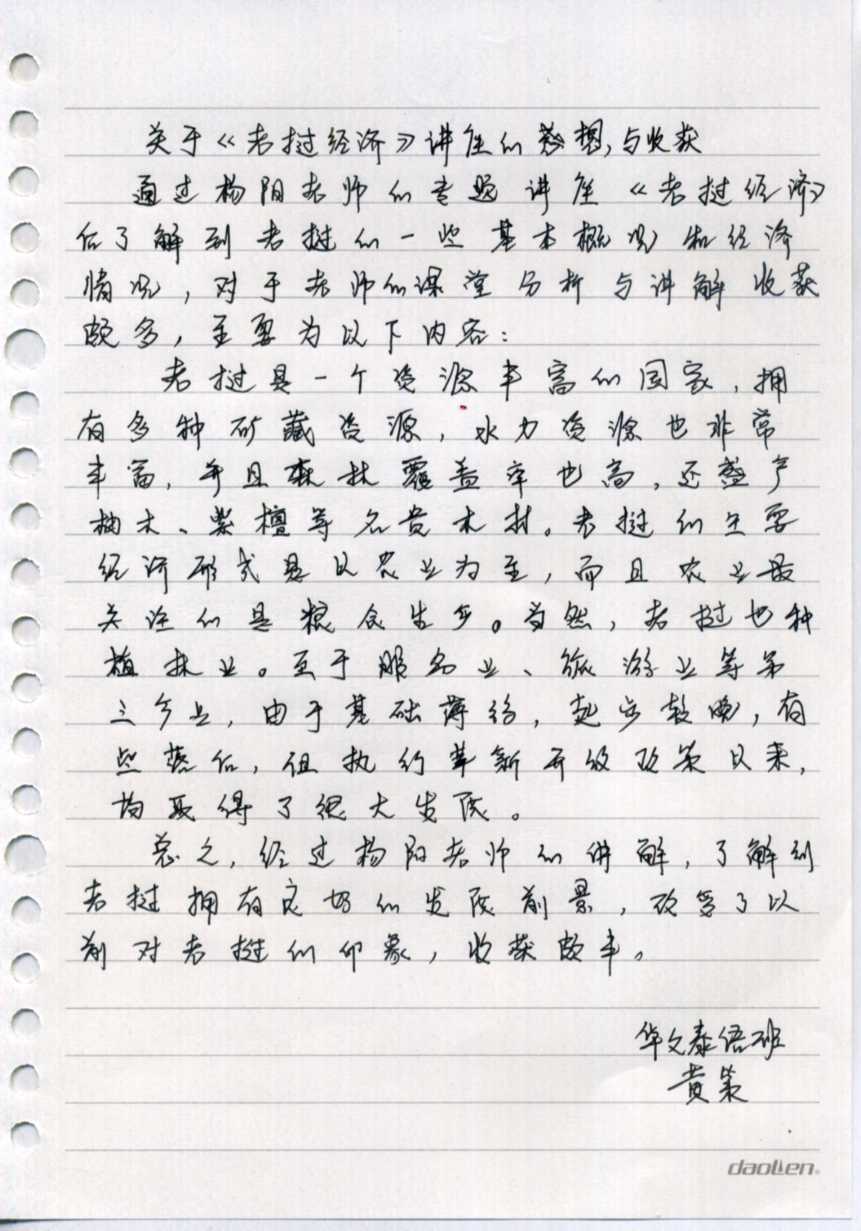 关于《老挝经济》讲座的感想,与收获
通过杨阳老师的专题讲座《老挝经济》
后了解到老挝的一些基本概况和经济
情况，对于老师的课堂分析与讲解收获
颇多，主要为以下内容：
老挝是一个资源丰富的国家，拥
有多种矿藏资源，水力资源也非常
丰富，并且森林覆盖率也高，还盛产
柚木、紫檀等名贵木材。老挝的主要
经济形式是以农业为主，而且农业最
关注的是粮食生产。当然，老挝也种
植林业。至于服务业、旅游业等第
三产业，由于基础薄弱，起步较晚，有
些落后，但执行革新开放政策以来，
均取得了很大发展。
总之，经过杨阳老师的讲解，了解到
老挝拥有良好的发展前景，改写了以
前对老挝的印象，收获颇丰。
华文泰语班
黄策
daolien